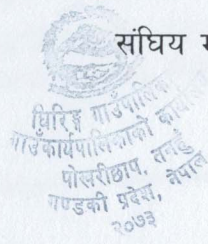 संघिय म
घिरिङ्ग गाउँपालिका
गाउँकार्यपालिकाको कार्यालय
पोखरीछाप, तनहुँ
गण्डकी प्रदेश, नेपाल
२०७३